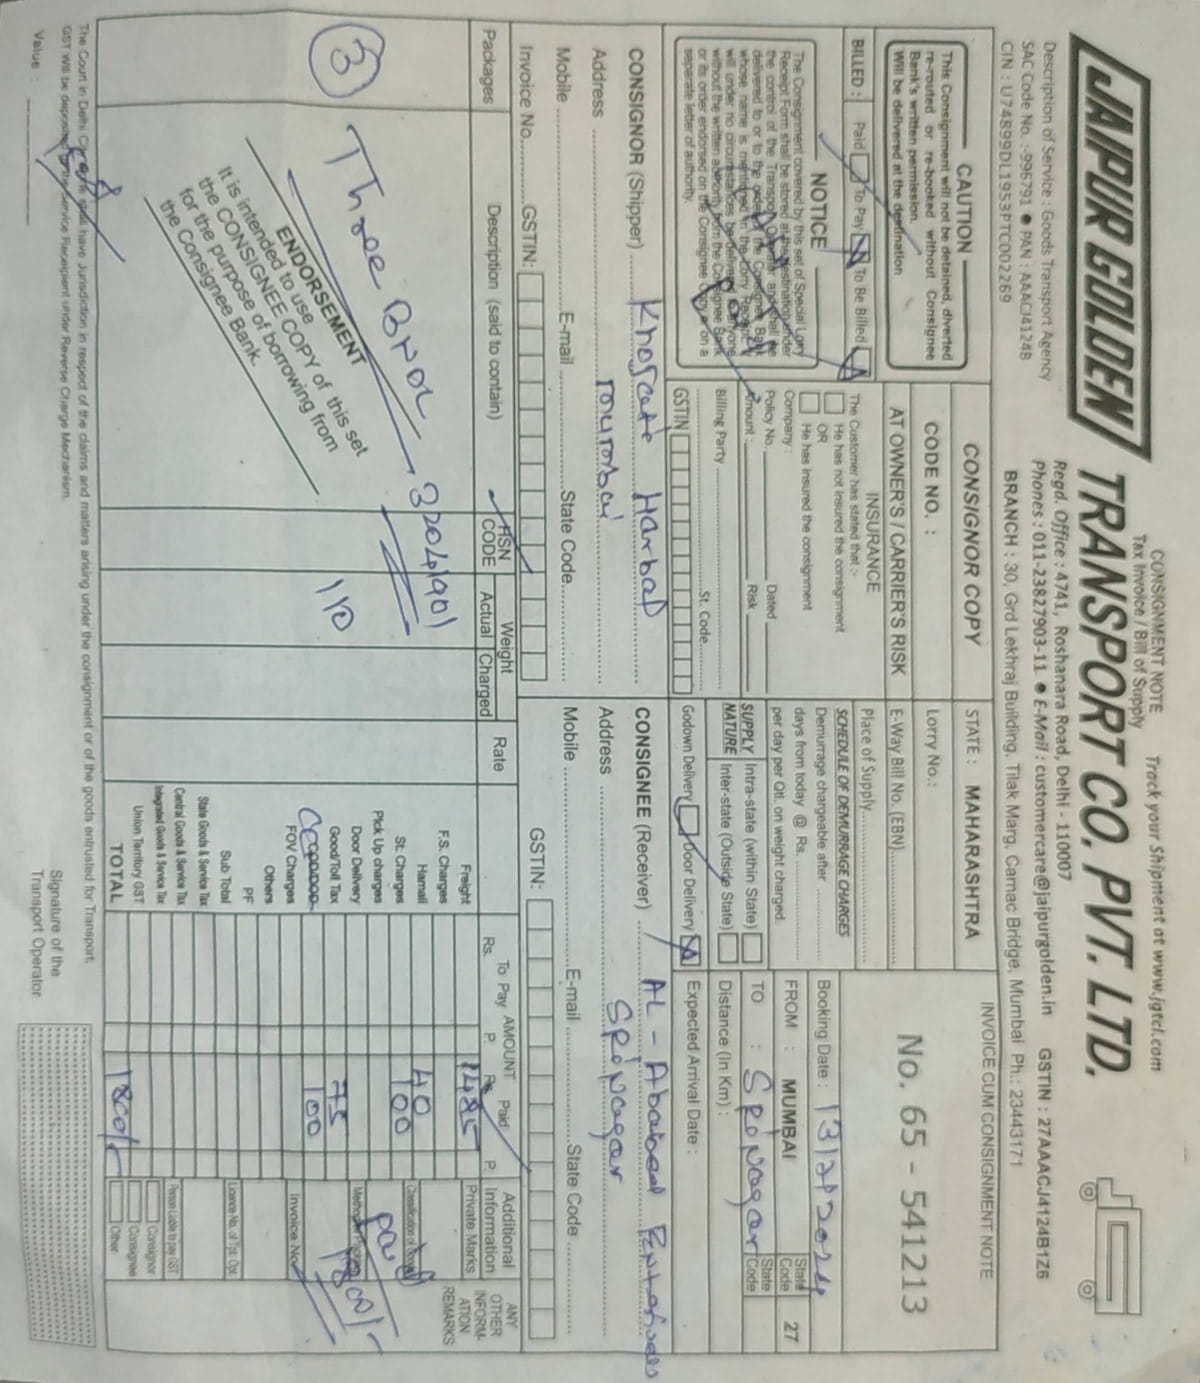 CONSIGNMENT NOTE
Tax Invoice / Bill of Supply
Track your Shipment at www.jgtcl.com
JAIPUR GOLDEN TRANSPORT CO. PVT. LTD.
Regd. Office : 4741, Roshanara Road, Delhi - 110007
Description of Service : Goods Transport Agency
Phones : 011-23827903-11 ● E-Mail : customercare@jaipurgolden.in
GSTIN : 27AAACJ4124B1Z6
SAC Code No. :-996791 ● PAN : AAACJ4124B
CIN : U74899DL1953PTC002269
BRANCH : 30, Grd Lekhraj Building, Tilak Marg, Carnac Bridge, Mumbai Ph.: 23443171
CAUTION
This Consignment will not be detained, diverted
re-routed or re-booked without Consignee
Bank's written permission.
Will be delivered at the destination
CONSIGNOR COPY
STATE : MAHARASHTRA
INVOICE CUM CONSIGNMENT NOTE
CODE NO. :
Lorry No.:
No. 65 - 541213
AT OWNER'S / CARRIER'S RISK
E-Way Bill No. (EBN)
BILLED : Paid To Pay To Be Billed
INSURANCE
The Customer has stated that :-
He has not insured the consignment
OR
He has insured the consignment
Company :
Policy No. Dated
Amount : Risk
Billing Party
St. Code
GSTIN
Place of Supply
SCHEDULE OF DEMURRAGE CHARGES
Demurrage chargeable after
days from today @ Rs.
per day per Qtl. on weight charged.
SUPPLY Intra-state (within State)
NATURE Inter-state (Outside State)
Godown Delivery Door Delivery
Booking Date : 13/2/2024
FROM : MUMBAI State Code 27
TO : Srinagar State Code
Distance (In Km) :
Expected Arrival Date :
NOTICE
The Consignment covered by this set of Special Lorry
Receipt Form shall be stored at the destination under
the control of the Transport Operator and shall be
delivered to or to the order of the Consignee Bank
whose name is mentioned in the Lorry Receipt. It
will under no circumstances be delivered to anyone
without the written authority from the Consignee Bank
or its order endorsed on the Consignee Copy or on a
separate letter of authority.
CONSIGNOR (Shipper) Harbal
Address
Mobile E-mail State Code
Invoice No. GSTIN:
CONSIGNEE (Receiver) AL-
Address Srinagar
Mobile E-mail State Code
GSTIN:
Packages
Description (said to contain)
HSN CODE
Weight
Actual Charged
Rate
AMOUNT
To Pay Paid
Rs. P. Rs. P.
Additional Information
ANY OTHER INFORMATION REMARKS
3
Three
3204901
110
ENDORSEMENT
It is intended to use
the CONSIGNEE COPY of this set
for the purpose of borrowing from
the Consignee Bank.
Freight 1485
F.S. Charges
Hamali 40
St. Charges 100
Pick Up charges
Door Delivery
Good/Toll Tax 75
FOV Charges 100
Others
PF
Sub Total
State Goods & Service Tax
Central Goods & Service Tax
Integrated Goods & Service Tax
Union Territory GST
TOTAL 1800/-
Private Marks
Paid
1800/-
Invoice No.
Licence No. of Tpt. Opt.
Person Liable to pay GST
Consignor
Consignee
Other
The Court in Delhi City alone shall have Jurisdiction in respect of the claims and matters arising under the consignment or of the goods entrusted for Transport.
GST Will be deposited by the Service Receipient under Reverse Charge Mechanism.
Value :
Signature of the
Transport Operator